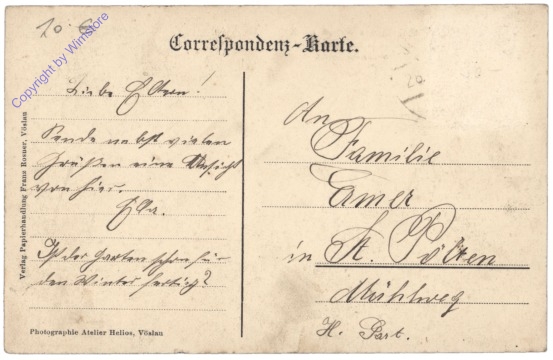 10
Copyright by Wimstore
Correspondenz-Karte.
Verlag Papierhandlung Franz Rosner, Vöslau
Liebe Eltern!
Sende nebst vielen
Grüßen eine Ansicht
von hier.
Ella.
Ist der Garten schon für
den Winter fertig?
Photographie Atelier Helios, Vöslau
20
An
Familie
in St. Pölten
Mühlweg
H. Part.